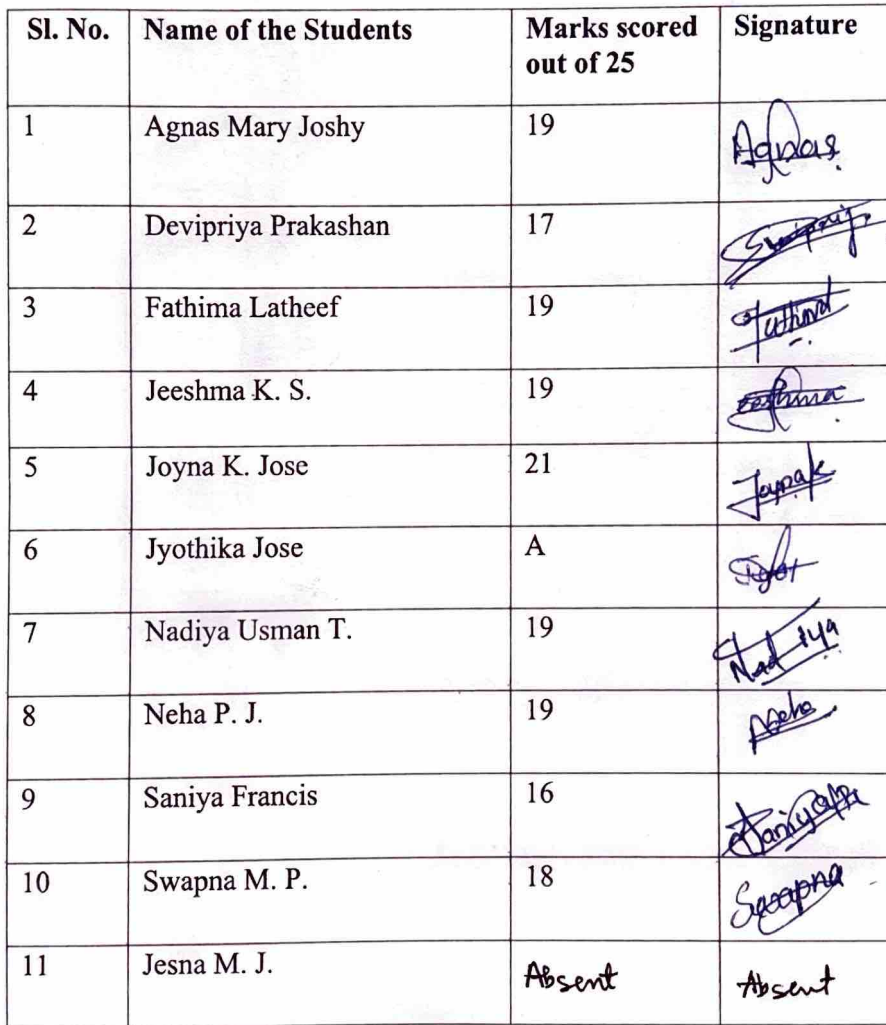 Sl. No. Name of the Students Marks scored Signature
out of 25
1 Agnas Mary Joshy 19 Agnas
2 Devipriya Prakashan 17
3 Fathima Latheef 19
4 Jeeshma K. S. 19
5 Joyna K. Jose 21
6 Jyothika Jose A
7 Nadiya Usman T. 19 Nadiya
8 Neha P. J. 19 Neha
9 Saniya Francis 16
10 Swapna M. P. 18 Swapna
11 Jesna M. J. Absent Absent